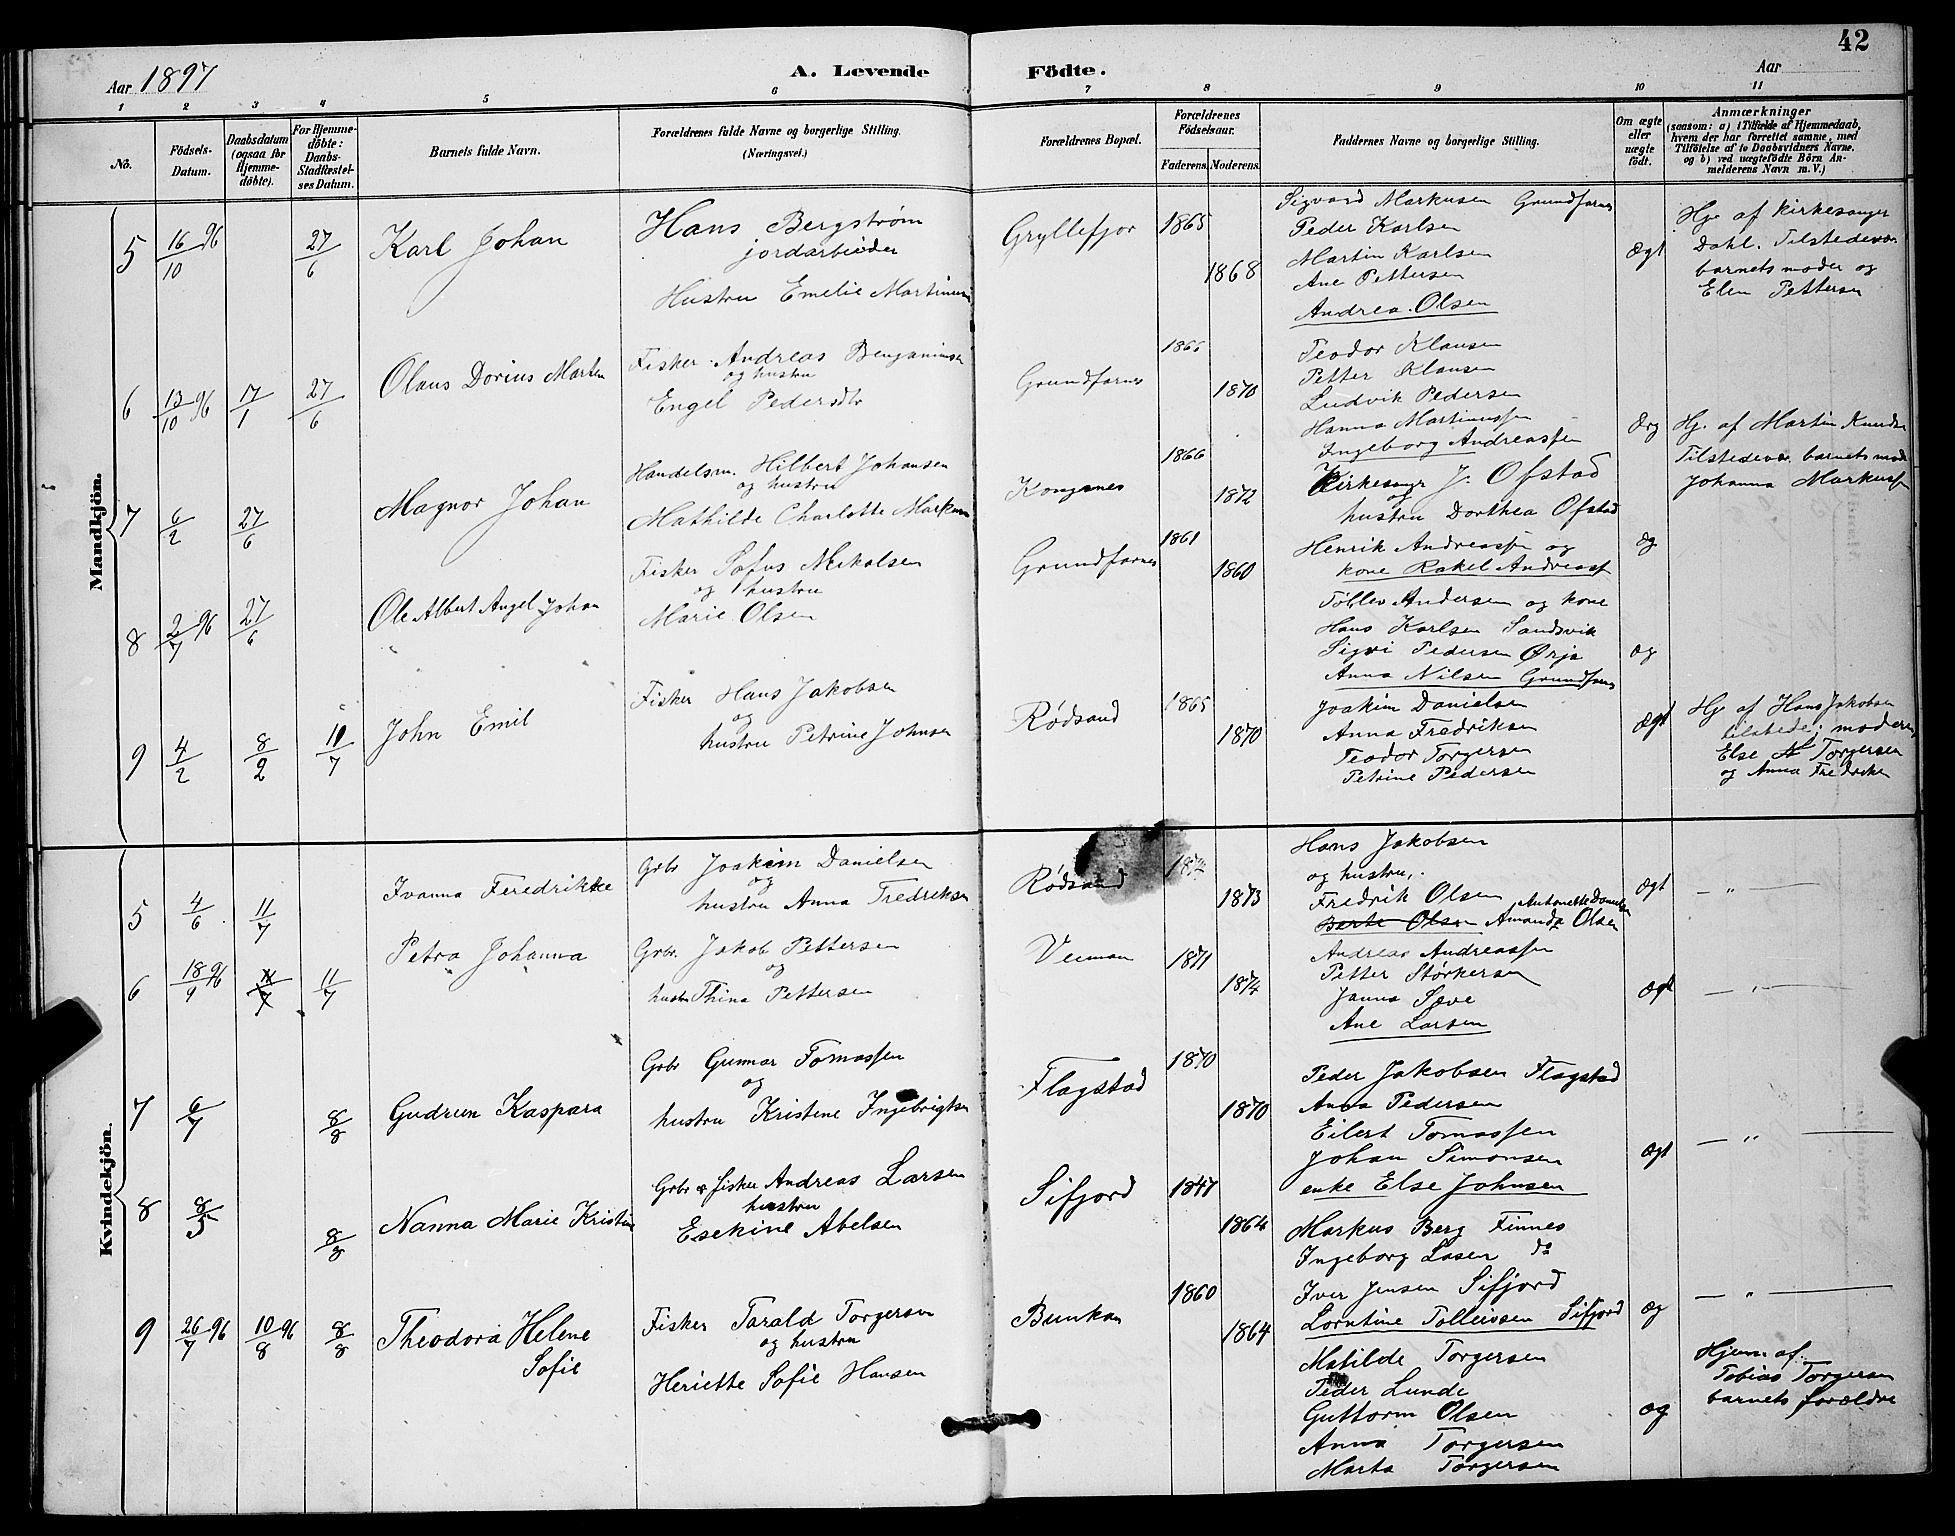 42
Aar 1897
A. Levende Födte.
Aar
1 2 3 4 5 6 7 8 9 10 11
No.
Födsels-Datum.
Daabsdatum (ogsaa for Hjemme-döbte).
For Hjemme-döbte: Daabs-Stadfæstel-ses Datum.
Barnets fulde Navn.
Forældrenes fulde Navne og borgerlige Stilling. (Næringsvei.)
Forældrenes Bopæl.
Forældrenes Födselsaar.
Faderens. Moderens.
Faddernes Navne og borgerlige Stilling.
Om ægte eller uægte födt.
Anmærkninger (saasom: a) i Tilfælde af Hjemmedaab, hvem der har forrettet samme, med Tilföielse af to Daabsvidners Navne. og b) ved uægtefödte Börn An-melderens Navn m. V.)
Mandkjön.
5 16/10 96 27/6 Karl Johan
Hans Bergstrøm
jordarbeider
Hustru Emelie Martinus
Gryllefjor 1865 1868
Sigvard Markusen Grundfarnes
Peder Karlsen
Martin Karlsen
Ane Pettersen
Andrea Olsen
Ægt
Hj. af Kirkesanger
Dahl. Tilstedevær
barnets moder og
Elen Pettersen
6 13/10 96 17/1 27/6 Olaus Dorius Marten
Fisker Andreas Benjaminsen
og hustru
Engel Pedersdtr
Grundfarnes 1865 1870
Teodor Klausen
Petter Klausen
Ludvik Pedersen
Hanna Martinussen
Ingeborg Andreassen
Æg
Hj. af Martin Knudsen
Tilstedevæ. barnets mod
Johanna Markuss
7 6/2 27/6 Magnor Johan
Handelsm. Hilbert Johansen
og hustru
Mathilde Charlotte Markus
Kongsnes 1866 1872
Kirkesangr J. Ofstad
og
hustru Dorthea Ofstad
æg
8 2/7 96 27/6 Ole Albert Angel Johan
Fisker Sofus Nikolsen
og hustru
Marie Olsen
Grundfarnes 1861 1860
Henrik Andreassen og
kone Rakel Andreass
Tollev Andersen og kone
Hans Karlsen Sandsvik
Sigvi Pedersen Ørja
Anna Nilsen Grundfarnes
æg
9 4/2 8/2 11/7 John Emil
Fisker Hans Jakobsen
og
hustru Petrine Johnsen
Rødsand 1865 1870
Joakim Danielsen
Anna Fredriksen
Teodor Torgersen
Petrine Pedersen
ægt
Hj af Hans Jakobsen
tilstede: moderen,
Else Torgersen
og Anna Fredriksen
Kvindekjön.
5 4/6 11/7 Ivanna Feredrikke
Grbr Joakim Danielsen
og
hustru Anna Fredriksen
Rødsand 1873
Hans Jakobsen
og hustru,
Fredrik Olsen Antonette Daniels
Berte Olsen Amanda Olsen
ægt — „ —
6 18/9 96 11/7 11/7 Petra Johanna
Grbr. Jakob Pettersen
og
hustr Thina Pettersen
Veiman 1871 1874
Andreas Andreassen
Petter Størkersen
Janna Save
Ane Larsen
ægt — „ —
7 6/7 8/8 Gudrun Kaspara
Grbr Gunnar Tomassen
og
hustru Kristine Ingebrigtsen
Flagstad 1870 1870
Peder Jakobsen Flagstad
Anna Pedersen
Eilert Tomassen
Johan Simonsen
enke Else Johnsen
ægt — „ —
8 8/5 8/8 Nanna Marie Kristin
Grbr & fisker Andreas Larsen
hustru
Esekine Abelsen
Sifjord 1847 1864
Markus Berg Finnes
Ingeborg Lasen do
Iver Jensen Sifjord
Lorntine Tolleivsen Sifjord
æg — „ —
9 26/7 96 10/8 96 8/8 Theodora Helene
Sofie
Fisker Tarald Torgersen
og hustru
Heriette Sofie Hansen
Bunkan 1860 1864
Matilde Torgersen
Peder Lunde
Guttorm Olsen
Anna Torgersen
Marta Torgersen
æg
Hjem. af.
Tobias Torgersen
barnets forældre